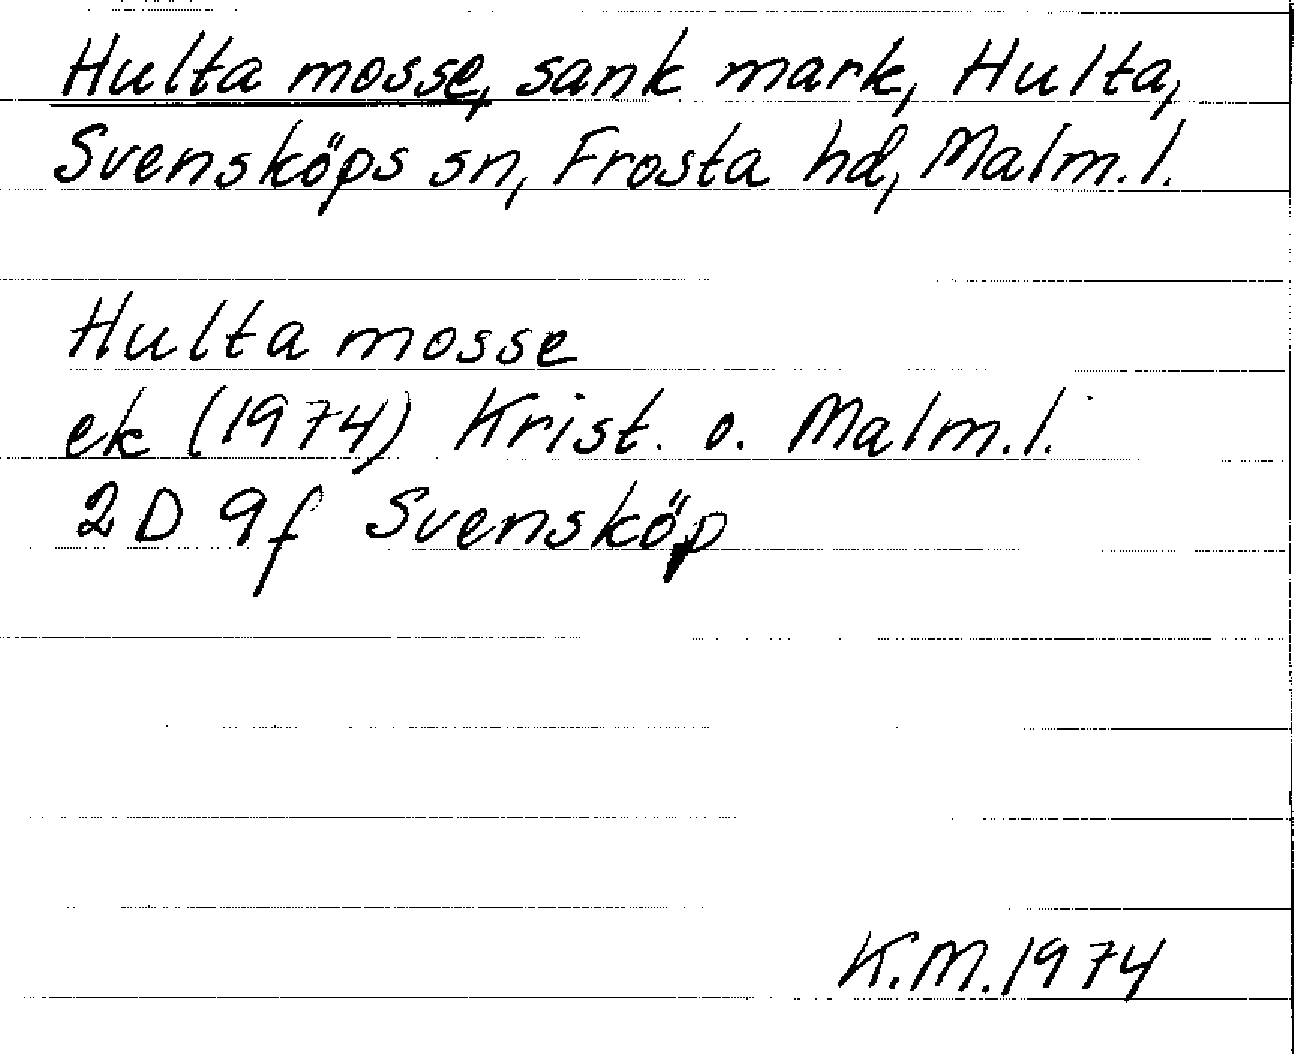 Hulta mosse, sank mark, Hulta,
Svensköps sn, Frosta hd, Malm.l.
Hulta mosse
ek (1974) Krist. o. Malm.l.
2D 9f Svensköp
K.M.1974